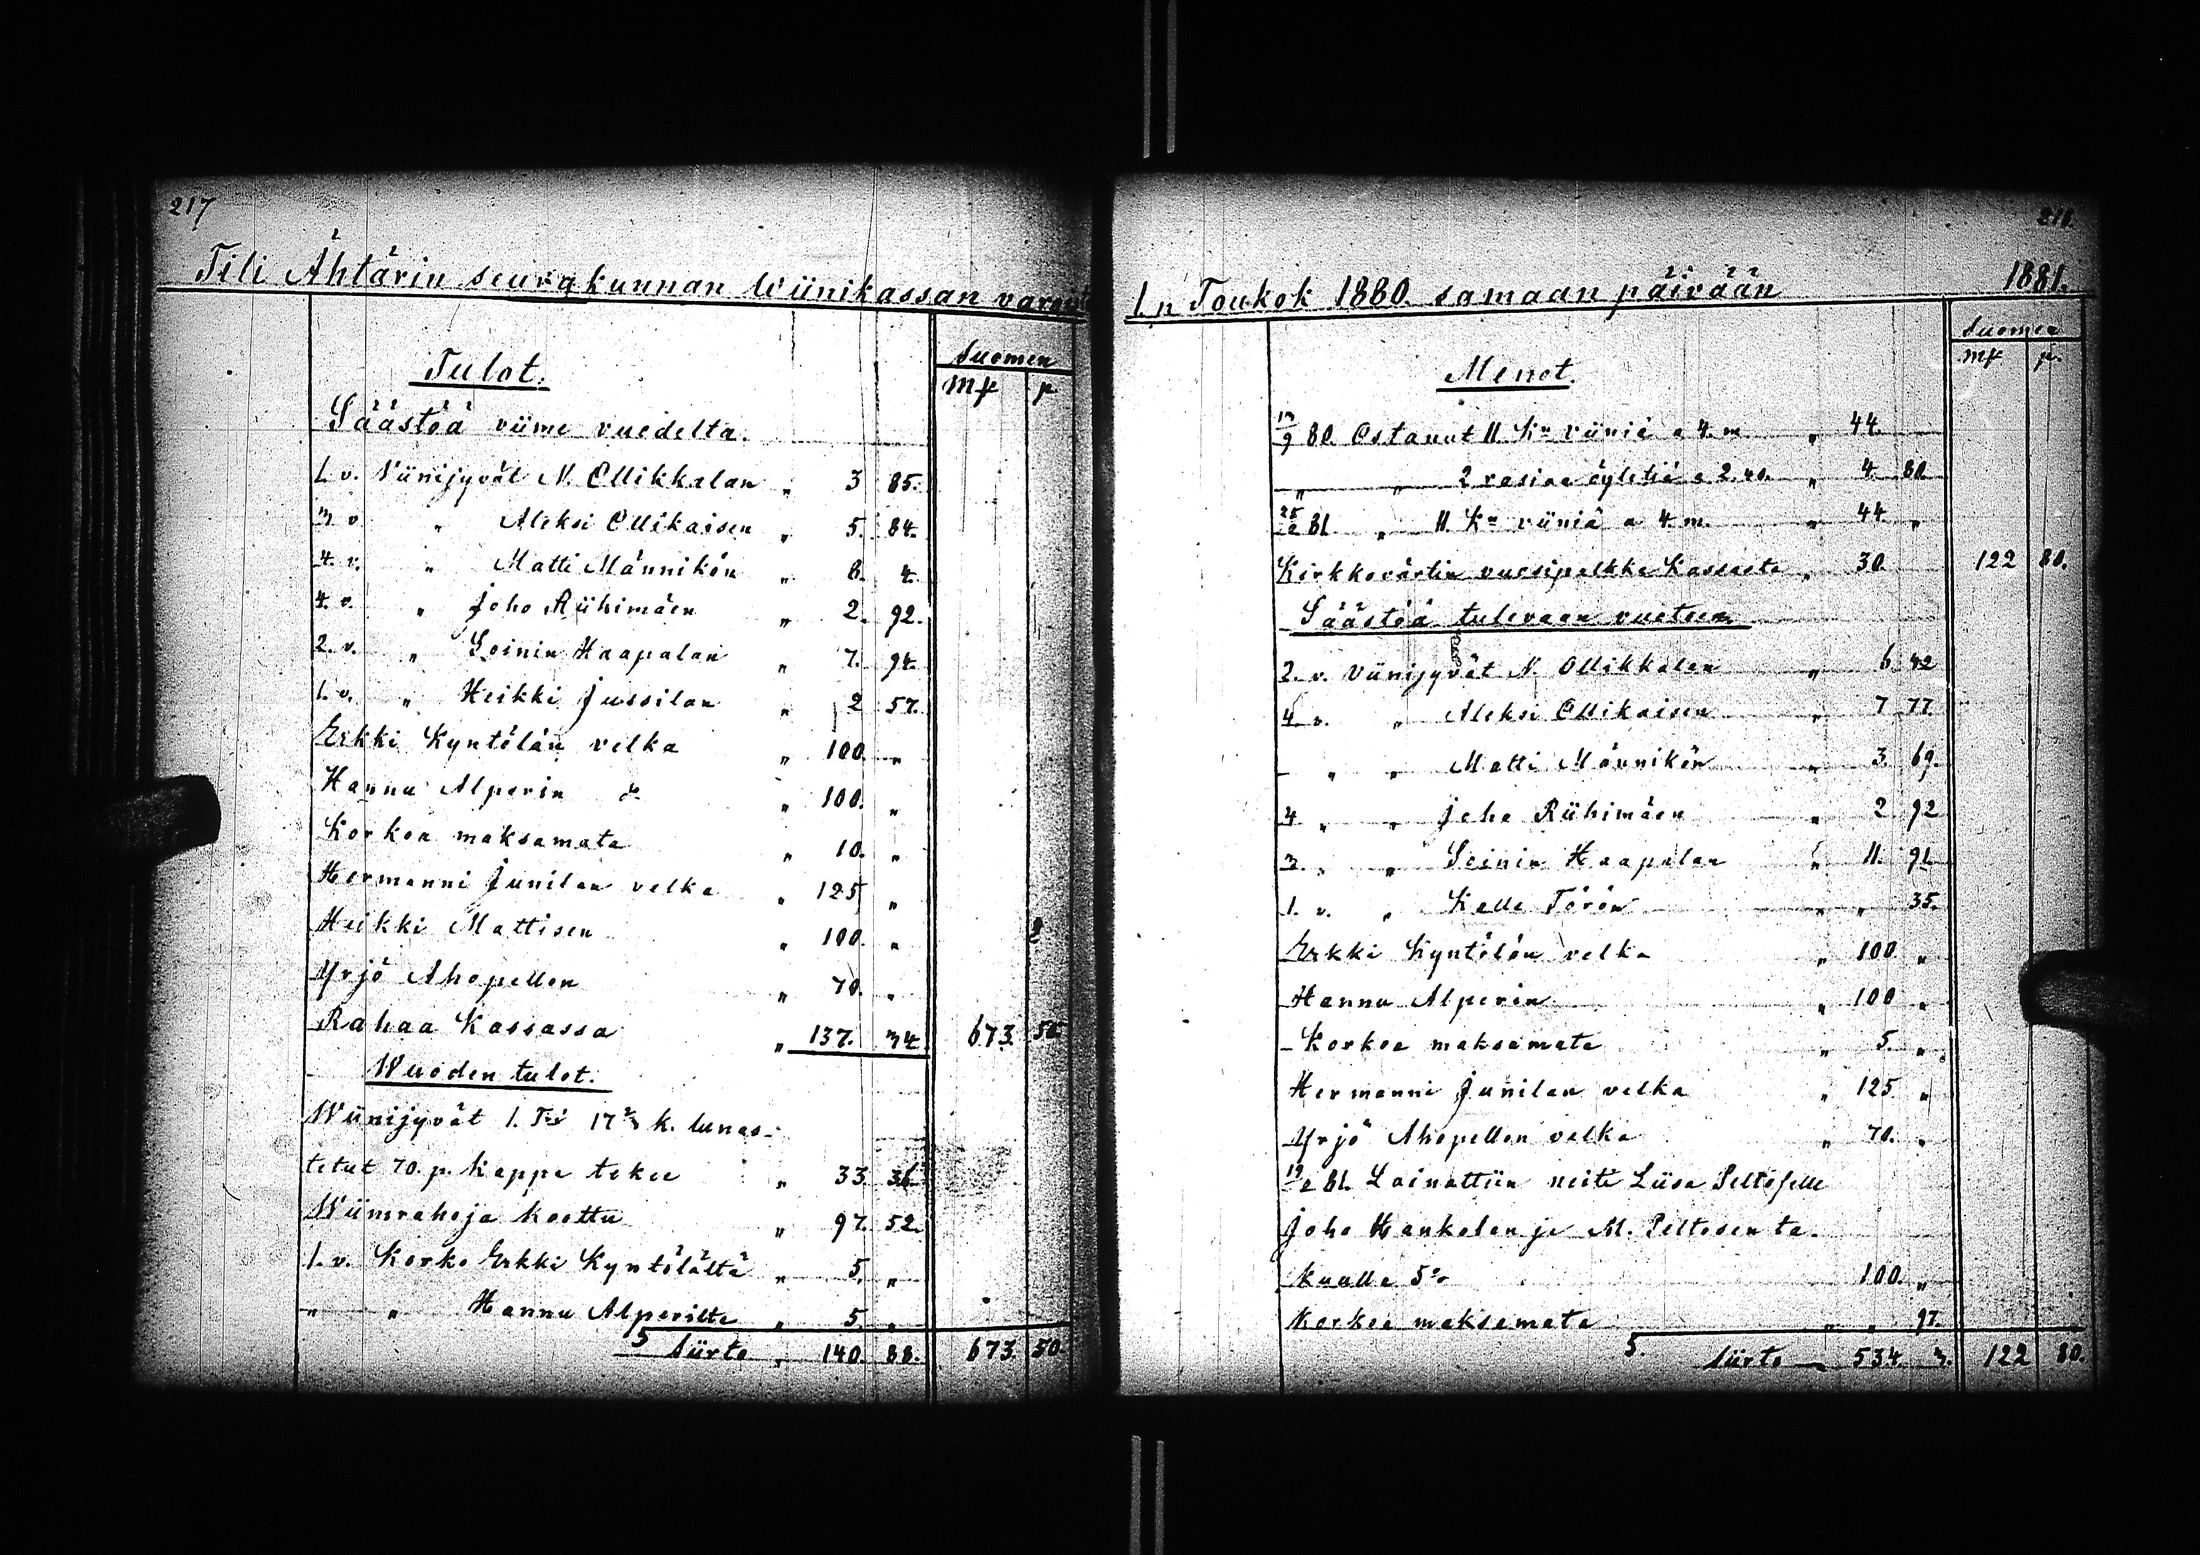 217
Tili Ähtärin seurakunnan Wiinikassan
Tulot.
Suomen
Mk p
Säästöä viime vuodelta.
1. v. Viinijyvät N. Ollikkalan " 3 85.
3 v. " Aleksi Ollikaisen " 5. 84.
4. v. " Matti Männikön " 8. 4.
4. v. " Joho Riihimäen " 2. 92.
2. v. " Soinin Haapalan " 7. 94.
1. v. " Heikki Jussilan " 2 57.
Erkki Kyntölän velka " 100. "
Hannu Alperin " 100. "
Korkoa maksamata " 10. "
Hermanni Junilan velka " 125 "
Heikki Mattisen " 100. "
Yrjö Ahopellon " 70. "
Rahaa Kassassa " 137. 34 673. 50
Wuoden tulot.
Wiinijyvät 1. Tri 17 2/3 k. lunas-
tetut 70. p. kappa tekee " 33. 36
Wiinirahoja koottu " 97. 52.
1. v. Korko Erkki Kyntölältä " 5. "
" " Hannu Alperilta " 5. "
5 Siirto " 140. 88. 673. 50.
218.
1.n Toukok 1880. samaan päivään 1881.
Suomen
Mk p.
Menot.
13/9 80. Ostanut 11. Kn viiniä a 4. m. " 44.
" " 2 rasiaa öylehiä a 2.40. " 4. 80
25/2 81. " 11. Kn viiniä a 4. m. " 44. "
Kirkkovärtin vuosipalkka Kassasta " 30. 122 80.
Säästöä tulevaan vuoteen
2. v. Viinijyvät N. Ollikkalan " 6 42
4. v. " Aleksi Ollikaisen " 7 77.
" " Matti Männikön " 3. 69.
4 " " Joho Riihimäen " 2 92
3. " " Soinin Haapalan " 11. 91
1. v. " Kalle Törön " " 35.
Erkki Kyntölän velka " 100 "
Hannu Alperin " 100 "
Korkoa maksamata " 5. "
Hermanni Junilan velka " 125. "
Yrjö Ahopellon velka " 70. "
19/2 81. Lainattiin neiti Liisa Peltoselle
Joho Hankolan ja M. Peltosen ta-
kuulla 5% 100. "
Korkoa maksamata " " 97.
5. Siirto 534. 3. 122 80.